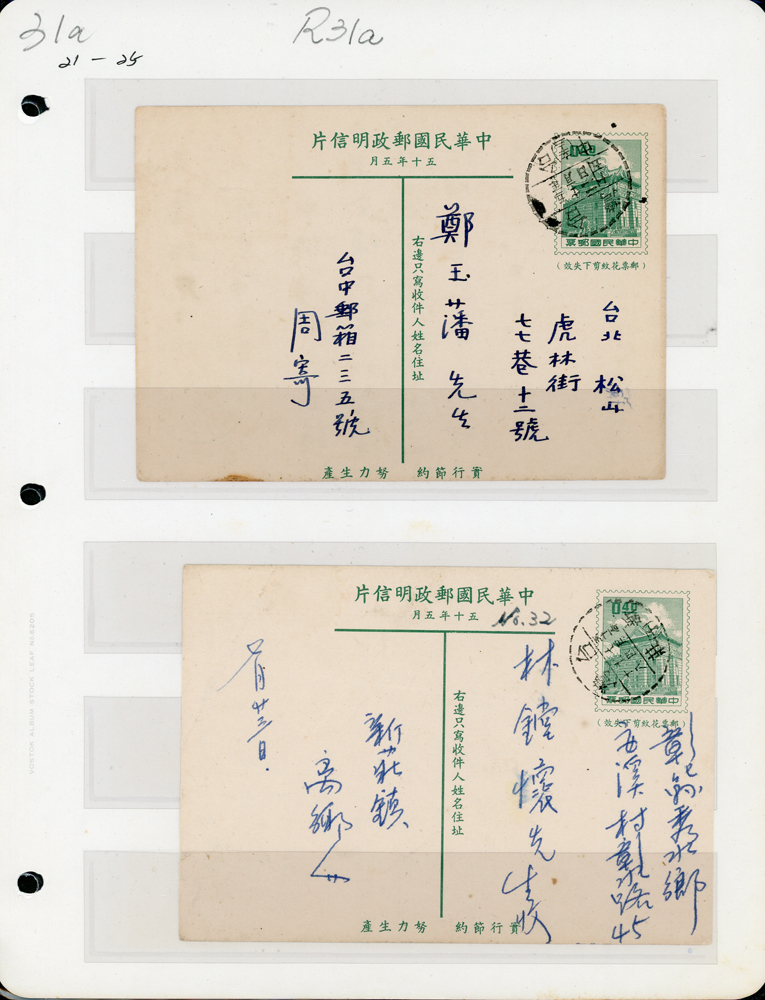 31a
R31a
21 - 25
中華民國郵政明信片
五十年五月
0.40
中華民國郵票
(郵票花紋剪下失效)
台北 松山
虎林街
七七巷十二號
鄭玉藩 先生
右邊只寫收件人姓名住址
台中郵箱二三五號
周寄
實行節約 努力生產
中華民國郵政明信片
五十年五月
No.32
0.40
中華民國郵票
(郵票花紋剪下失效)
彰縣秀水鄉
西溪村彰水路45
林鏜懷先生收
右邊只寫收件人姓名住址
新莊鎮
高鄉人
月廿三日.
實行節約 努力生產
VOSTOK ALBUM STOCK LEAF